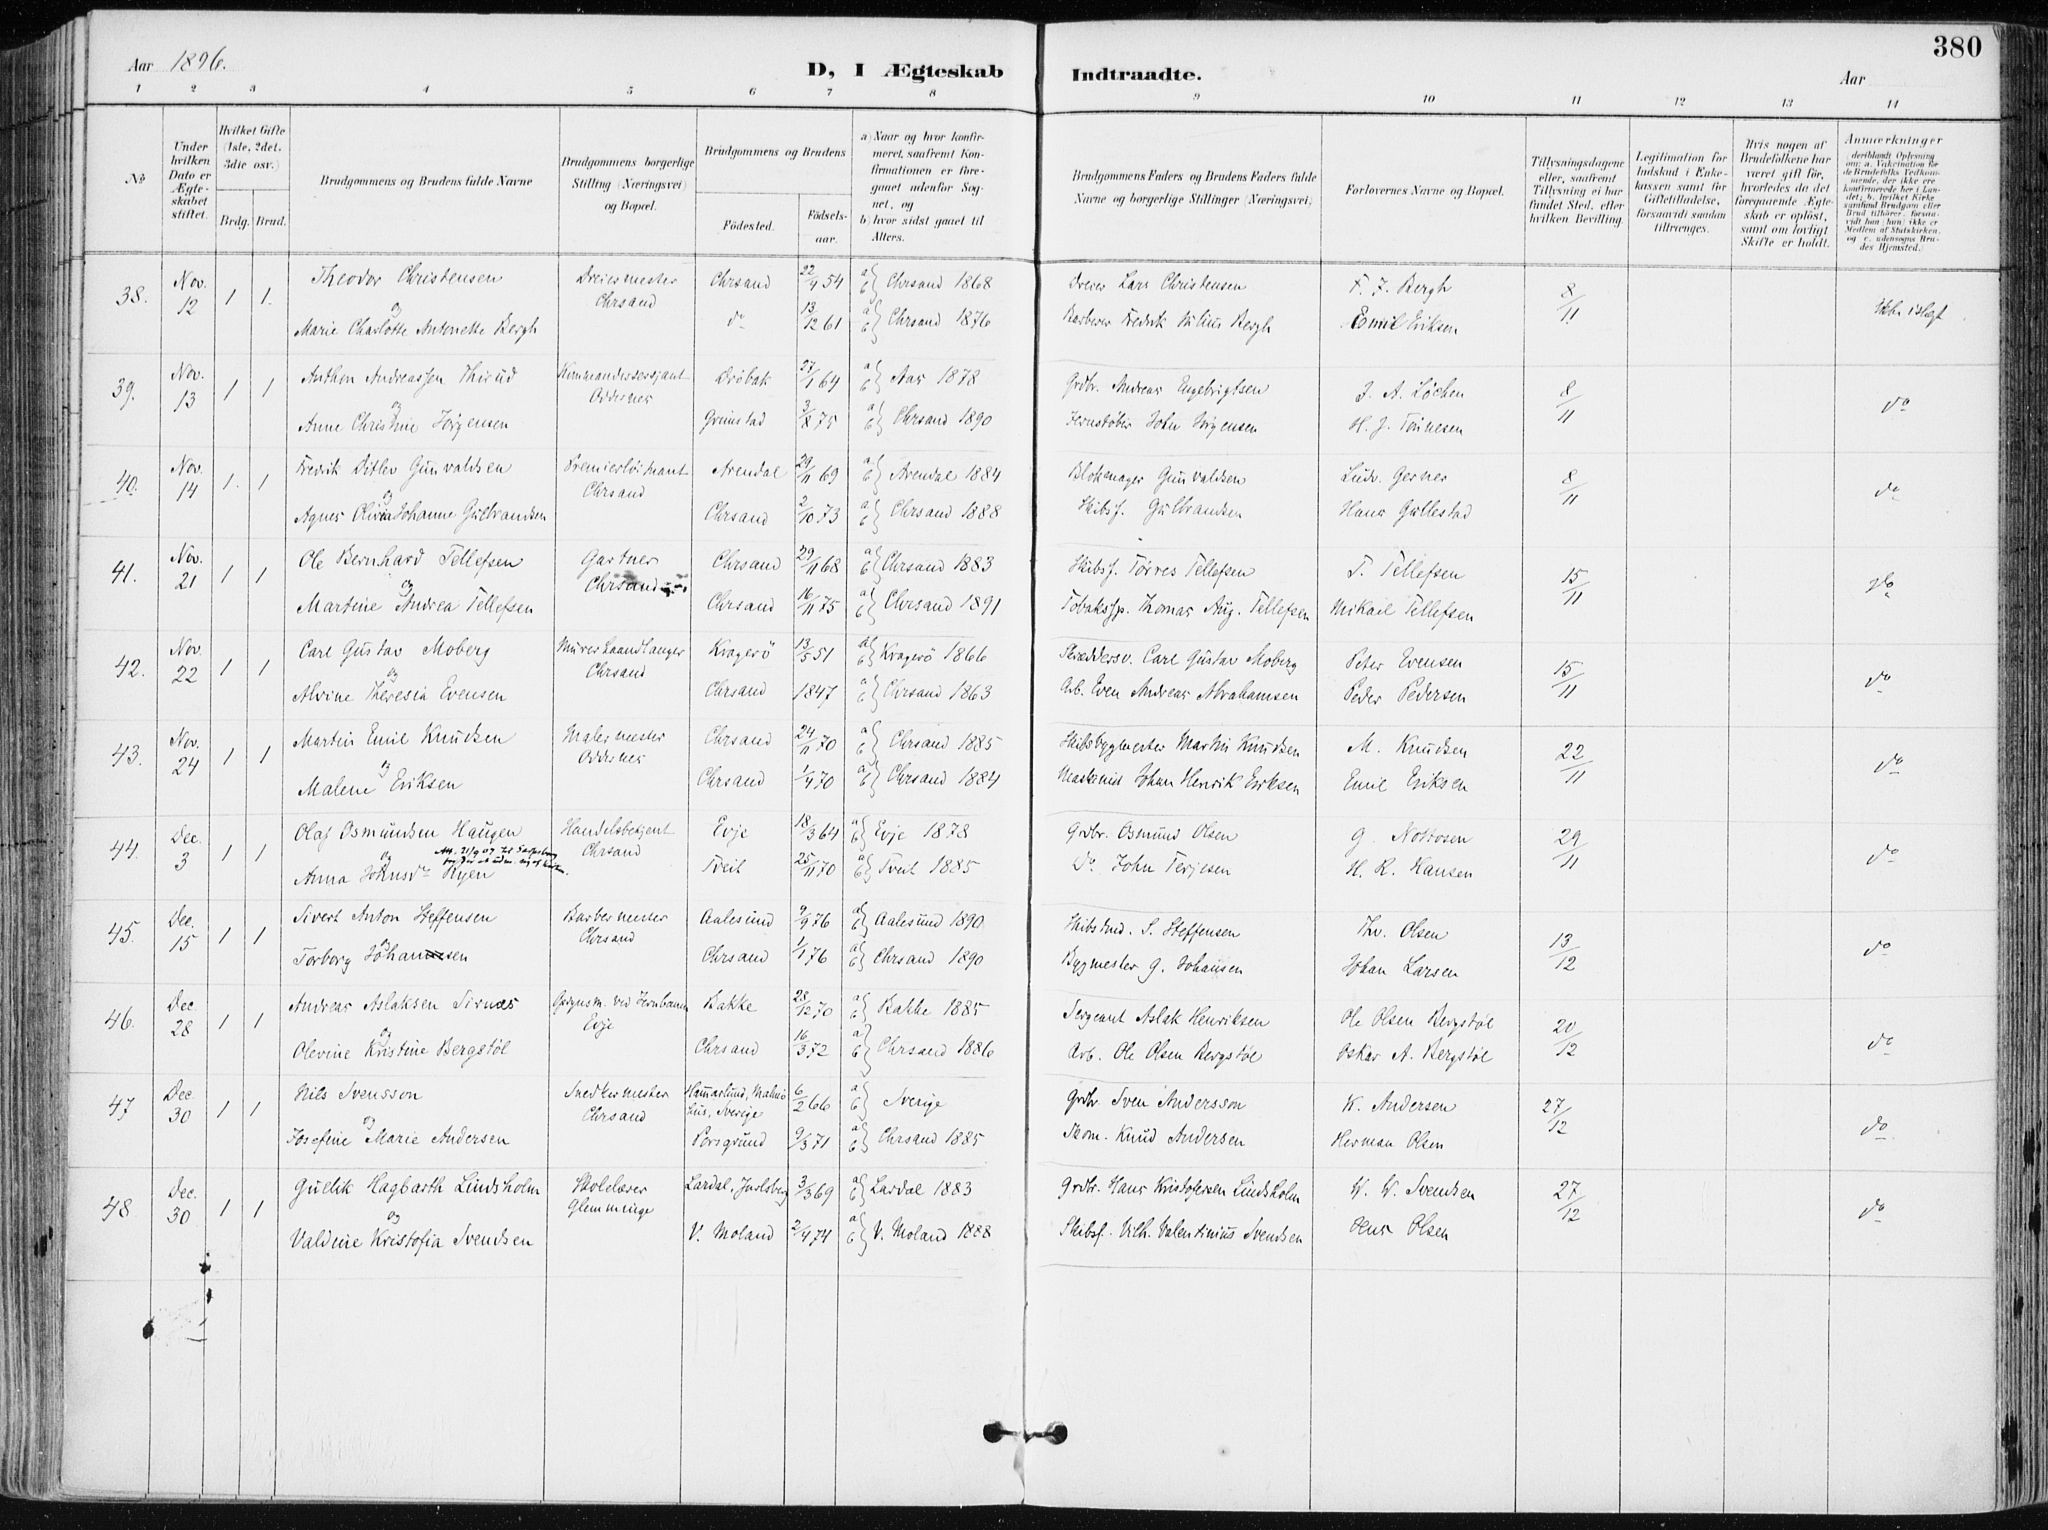 Aar 1896.
D, I Ægteskab Indtraadte.
Aar
380
1 2 3 4 5 6 7 8 9 10 11 12 13 14
No
Under hvilken Dato er Ægteskabet stiftet.
Hvilket Gifte (1ste, 2det, 3die osv.)
Brdg. Brud.
Brudgommens og Brudens fulde Navne
Brudgommens borgerlige Stilling (Næringsvei) og Bopæl.
Brudgommens og Brudens
Fødested.
Fødselsaar.
a) Naar og hvor konfirmeret, saafremt Konfirmationen er foregaaet udenfor Sognet, og
b) hvor sidst gaaet til Alters.
Brudgommens Faders og Brudens Faders fulde Navne og borgerlige Stillinger (Næringsvei)
Forlovernes Navne og Bopæl.
Tillysningsdagene eller, saafremt Tillysning ei har fundet Sted, efter hvilken Bevilling.
Legitimation for Indskud i Enkekassen samt for Giftetilladelse, forsaavidt saadan tiltrænges.
Hvis nogen af Brudefolkene har været gift før, hvorledes da det foregaaende Ægteskab er opløst, samt om lovligt Skifte er holdt.
Anmærkninger
38. Nov. 12 1 1. Theodor Christensen Dreiermester Chrsand Chrsand 22/4 54 a b Chrsand 1868 Dreier Lars Christensen F. J. Bergh 8/11
og Marie Charlotte Antonette Bergh do 13/12 61 a b Chrsand 1876 Barberer Fredrik Julius Bergh Emil Eriksen
39. Nov. 13 1 1 Anthon Andreassen Thirud Kommandersersjant Oddernes Drøbak 27/1 64 a b Aas 1878 Grdbr. Andreas Engebrigtsen J. A. Løchen 8/11 do
og Anne Christine Jørgensen Grimstad 3/8 75 a b Chrsand 1890 Jernstøber John Jørgensen H. J. Tønnesen
40. Nov. 14 1. 1 Fredrik Ditlev Gunvaldsen Premierløitnant Chrsand Arendal 29/11 69 a b Arendal 1884 Blokmager Gunvaldsen Ludv. Gerner 8/11 do
og Agnes Olivia Johanne Gulbrandsen Chrsand 2/10 73 a b Chrsand 1888 Skibsf. Gulbrandsen Hans Gullestad
41. Nov. 21 1 1 Ole Bernhard Tellefsen Gartner Chrsand Chrsand 29/11 68 a b Chrsand 1883 Skibsf. Torres Tellefsen T. Tellefsen 15/11 do
og Martine Andrea Tellefsen Chrsand 16/11 75 a b Chrsand 1891 Tobakssp. Thomas Aug. Tellefsen Mikail Tellefsen
42. Nov. 22 1 1 Carl Gustav Moberg Murerhaandlanger Chrsand Kragerö 13/5 51 a b Kragerö 1866 Skræddersv. Carl Gustav Moberg Peter Evensen 15/11 do
og Alvine Theresia Evensen Chrsand 1847 a b Chrsand 1863 Arb. Even Andreas Abrahamsen Peder Pedersen
43. Nov. 24 1 1 Martin Emil Knudsen Malermester Oddernes Chrsand 24/11 70 a b Chrsand 1885 Skibsbygmester Martin Knudsen M. Knudsen 22/11 do
og Malene Eriksen Chrsand 1/4 70 a b Chrsand 1884 Maskinist Johan Henrik Eriksen Emil Eriksen
44. Dec. 3 1 1 Olaf Osmundsen Haugen Handelsbetjent Chrsand Evje 18/3 64 a b Evje 1878 Grdbr. Osmund Olsen G. Nottosen 29/11 do
og Anna Johnsdr Ryen Tveit 25/11 70 a b Tveit 1885 Do John Terjesen H. R. Hansen
45. Dec. 15 1 1 Sivert Anton Steffensen Barbermester Chrsand Aalesund 9/9 76 a b Aalesund 1890 Skibstmd. S. Steffensen Thv. Olsen 13/12 do
og Torborg Johansen Chrsand 1/1 76 a b Chrsand 1890 Bygmester G. Johansen Johan Larsen
46. Dec. 28 1 1 Andreas Aslaksen Sirnæs ved Jernbanen Evje Bakke 28/12 70 a b Bakke 1885 Sergeant Aslak Henriksen Ole Olsen Bergstøl 20/12 do
og Olevine Kristine Bergstøl Chrsand 16/3 72 a b Chrsand 1886 Arb. Ole Olsen Bergstøl Oskar A. Bergstøl
47 Dec 30 1 1 Nils Svensson Snedkermester Chrsand Hamarlund, Malmö Lus, Sverige 6/2 66 a b Sverige Grdbr. Sven Andersson K. Andersen 27/12 do
og Josefine Marie Andersen Porsgrund 9/3 71 a b Chrsand 1885 Skom. Knud Andersen Herman Olsen
48. Dec. 30 1 1 Gullik Hagbarth Lindsholm Skolelærer Glemminge Lardal, Jarlsberg 3/3 69 a b Lardal 1883 Grdbr. Hans Kristofersen Lindsholm W. W. Svendsen 27/12 do
og Valdine Kristofia Svendsen V. Moland 2/4 74 a b V. Moland 1888 Skibsf. Vilh. Valentinius Svendsen Jens Olsen